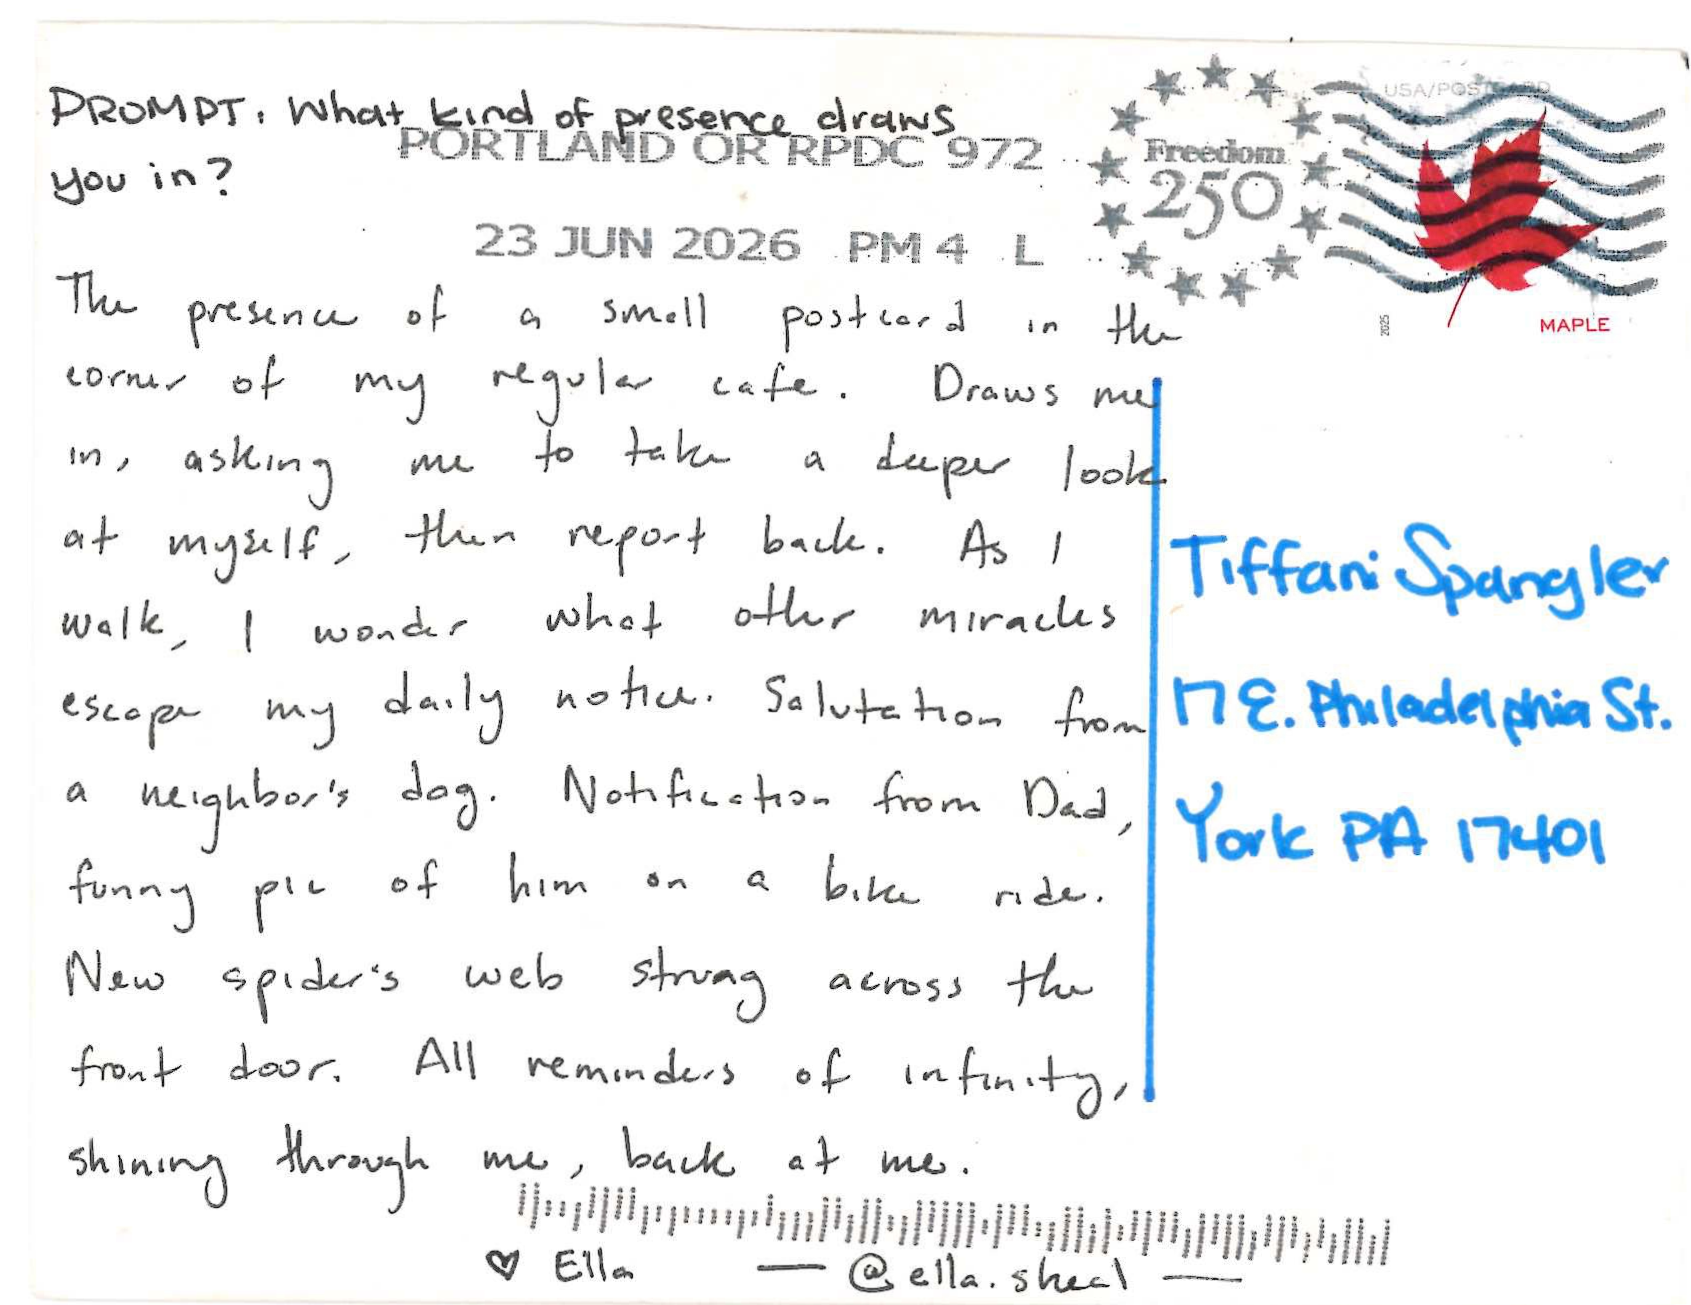 PROMPT: What kind of presence draws
you in?
PORTLAND OR RPDC 972
23 JUN 2026 PM 4 L
Freedom
250
USA/POSTCARD
2025
MAPLE
The presence of a small postcard in the
corner of my regular cafe. Draws me
in, asking me to take a deeper look
at myself, then report back. As I
walk, I wonder what other miracles
escape my daily notice. Salutation from
a neighbor's dog. Notification from Dad,
funny pic of him on a bike ride.
New spider's web strung across the
front door. All reminders of infinity,
shining through me, back at me.
♡ Ella — @ella.skeal —
Tiffani Spangler
17 E. Philadelphia St.
York PA 17401